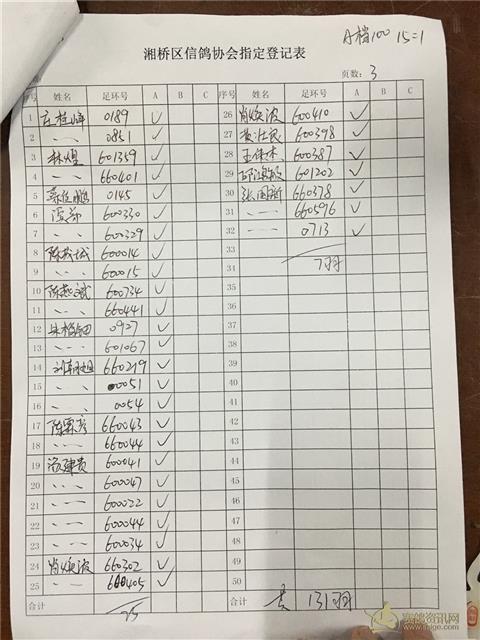 A档100 15=1
湘桥区信鸽协会指定登记表
页数: 3
序号 姓名 足环号 A B C 序号 姓名 足环号 A B C
1 0189 ✓ 26 肖焕波 600410 ✓
2 〃 0851 ✓ 27 黄壮民 600398 ✓
3 林煜 601359 ✓ 28 王伟木 600387 ✓
4 〃 660401 ✓ 29 601202 ✓
5 蔡佐鹏 0145 ✓ 30 张国新 660378 ✓
6 600330 ✓ 31 〃 660596 ✓
7 〃 600329 ✓ 32 〃 0713 ✓
8 600014 ✓ 33
9 〃 600015 ✓ 34 7羽
10 陈燕斌 600734 ✓ 35
11 〃 660441 ✓ 36
12 0927 ✓ 37
13 〃 601067 ✓ 38
14 660219 ✓ 39
15 〃 0051 ✓ 40
16 〃 0054 ✓ 41
17 陈霖彦 660043 ✓ 42
18 〃 660044 ✓ 43
19 600041 ✓ 44
20 〃 600047 ✓ 45
21 〃 600022 ✓ 46
22 〃 600044 ✓ 47
23 〃 600034 ✓ 48
24 肖焕波 660302 ✓ 49
25 〃 600405 ✓ 50
合计 25 合计 共 131羽
赛鸽资讯网